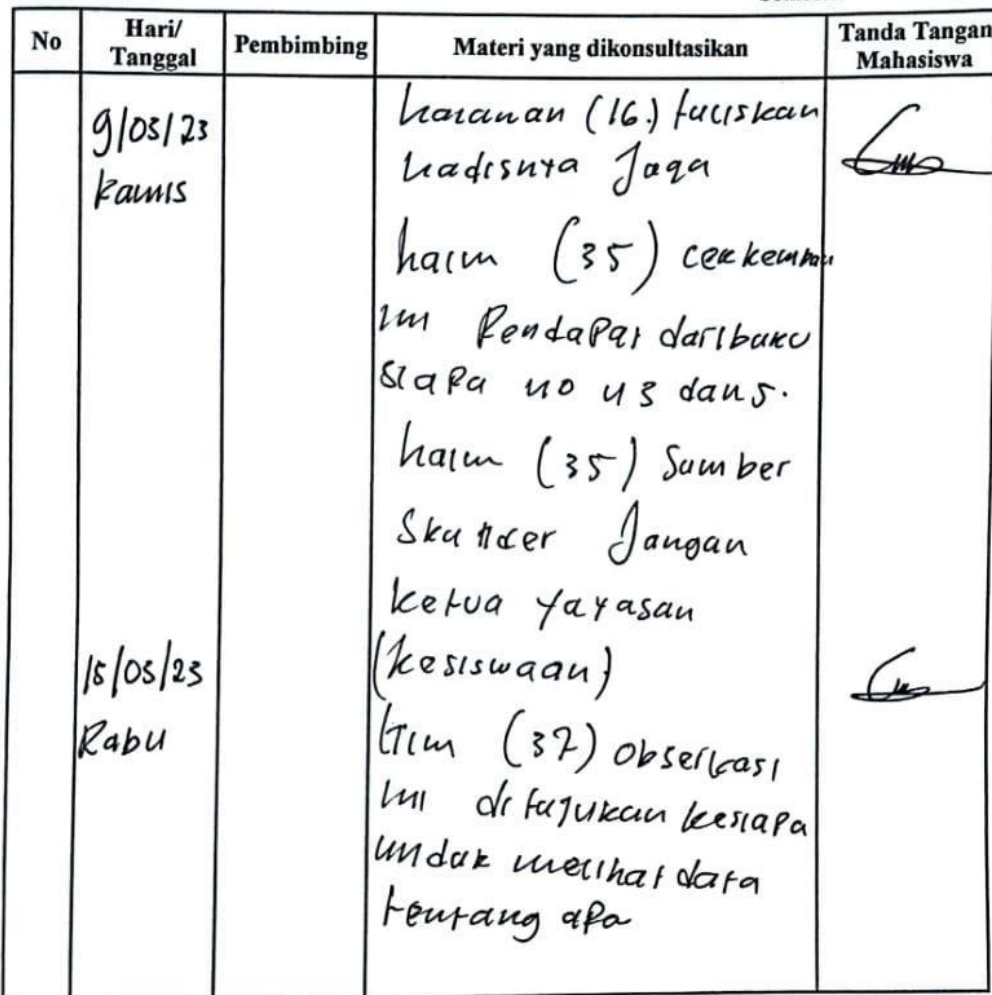 No Hari/ Tanggal Pembimbing Materi yang dikonsultasikan Tanda Tangan Mahasiswa
9/03/23 halaman (16.) tuliskan
Kamis hadisnya Juga
halm (35) cek kembali
ini Pendapat dari buku
siapa no 43 dan 5.
halm (35) Sumber
Skunder Jangan
ketua yayasan
15/03/23 (kesiswaan)
Rabu (37) observasi
ini ditujukan kesiapa
untuk melihat data
tentang apa